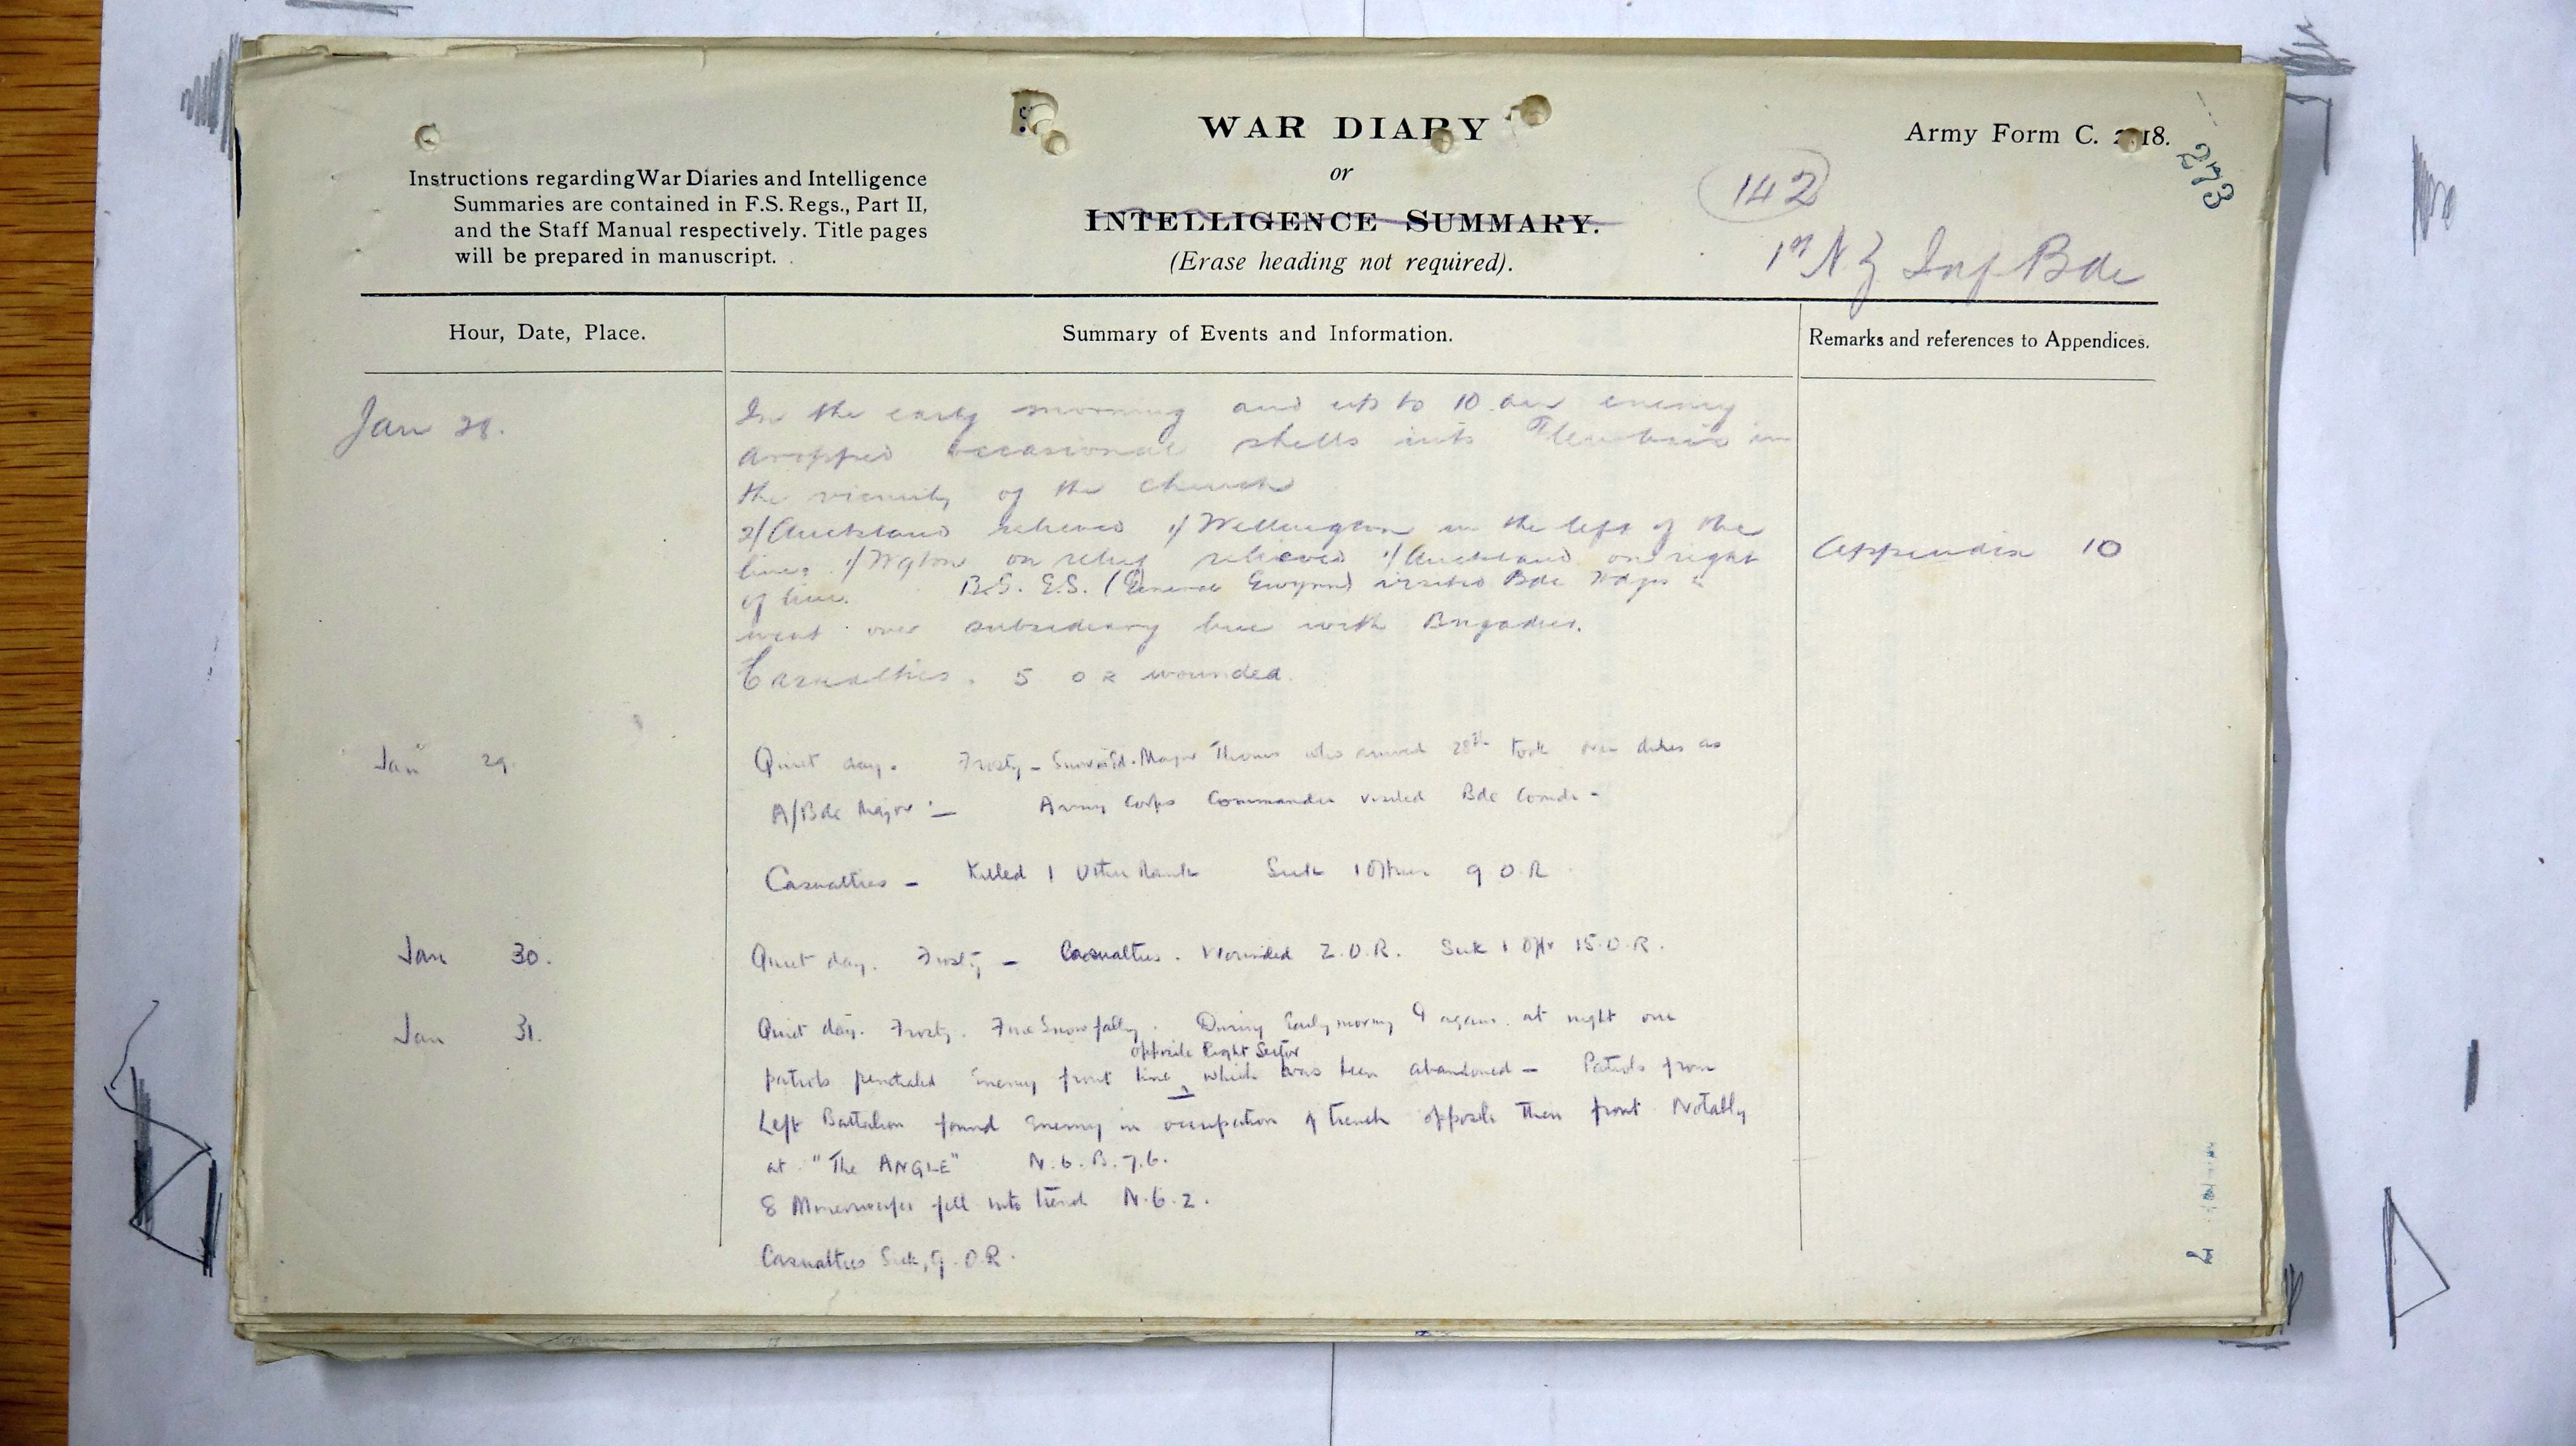 WAR DIARY
or
INTELLIGENCE SUMMARY.
(Erase heading not required).
Army Form C. 2118.
273
142
1st N Z Inf Bde
Instructions regarding War Diaries and Intelligence
Summaries are contained in F.S. Regs., Part II,
and the Staff Manual respectively. Title pages
will be prepared in manuscript.
Hour, Date, Place.
Summary of Events and Information.
Remarks and references to Appendices.
Jan 28.
In the early morning and up to 10 am enemy
dropped occasional shells into Fleurbaix in
the vicinity of the Church
2/Auckland relieved 1/Wellington in the left of the
line. 1/Wgton on relief relieved 1/Auckland on right
of line. (General Gwynn) visited Bde Hdqs &
went over subsidiary line with Brigadier.
Casualties. 5 O R wounded.
Appendix 10
Jan 29
Quiet day. Frosty - Major who arrived 28th took over duties as
A/Bde Major :- Army Corps Commander visited Bde Comdr -
Casualties - Killed 1 Other Rank Sick 1 Officer 9 O R
Jan 30.
Quiet day. Frosty - Casualties. Wounded 2. O. R. Sick 1 Offr 15. O. R.
Jan 31.
Quiet day. Frosty. Fine Snow falling. During Early morning & again at night our
opposite Right Sector
patrols penetrated Enemy front line which has been abandoned - Patrols from
Left Battalion found Enemy in occupation of trench opposite their front Notably
at "The ANGLE" N. 6. B. 7. 6.
8 Minenwerfer fell into trench N. 6. 2.
Casualties Sick, 9. O. R.